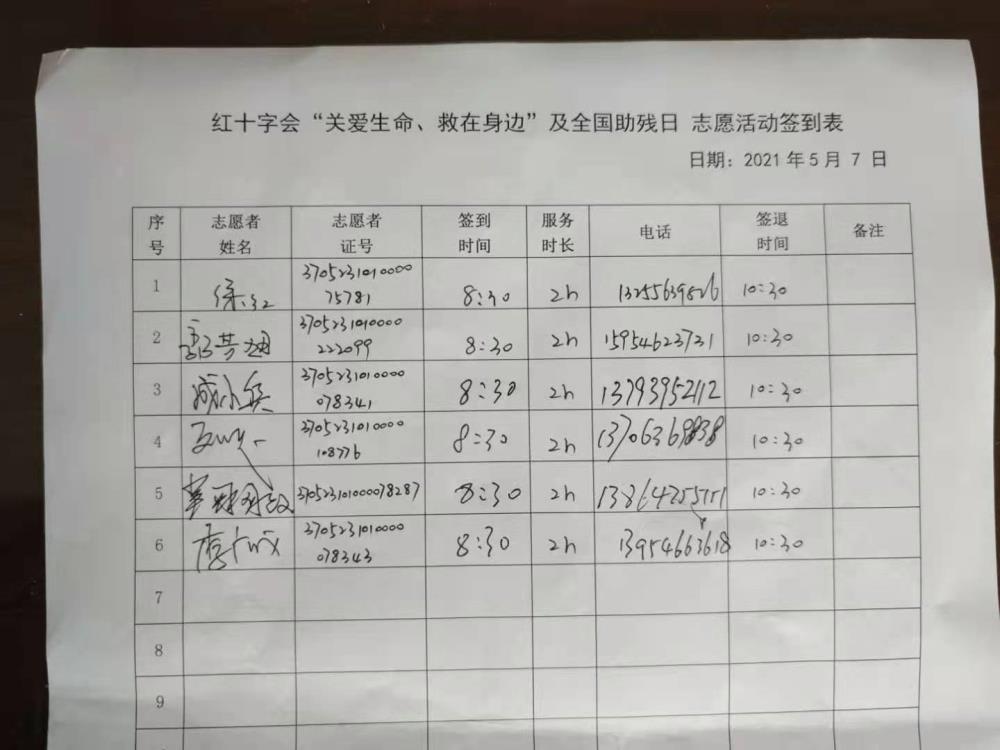 红十字会“关爱生命、救在身边”及全国助残日 志愿活动签到表
日期：2021 年 5 月 7 日
序号 志愿者姓名 志愿者证号 签到时间 服务时长 电话 签退时间 备注
1 徐红 370523101000075781 8:30 2h 13255639826 10:30
2 3705231010000222099 8:30 2h 15954623731 10:30
3 臧小兵 3705231010000078341 8:30 2h 13793952112 10:30
4 3705231010000108776 8:30 2h 13706369838 10:30
5 370523101000078287 8:30 2h 10:30
6 3705231010000078343 8:30 2h 13954663618 10:30
7
8
9